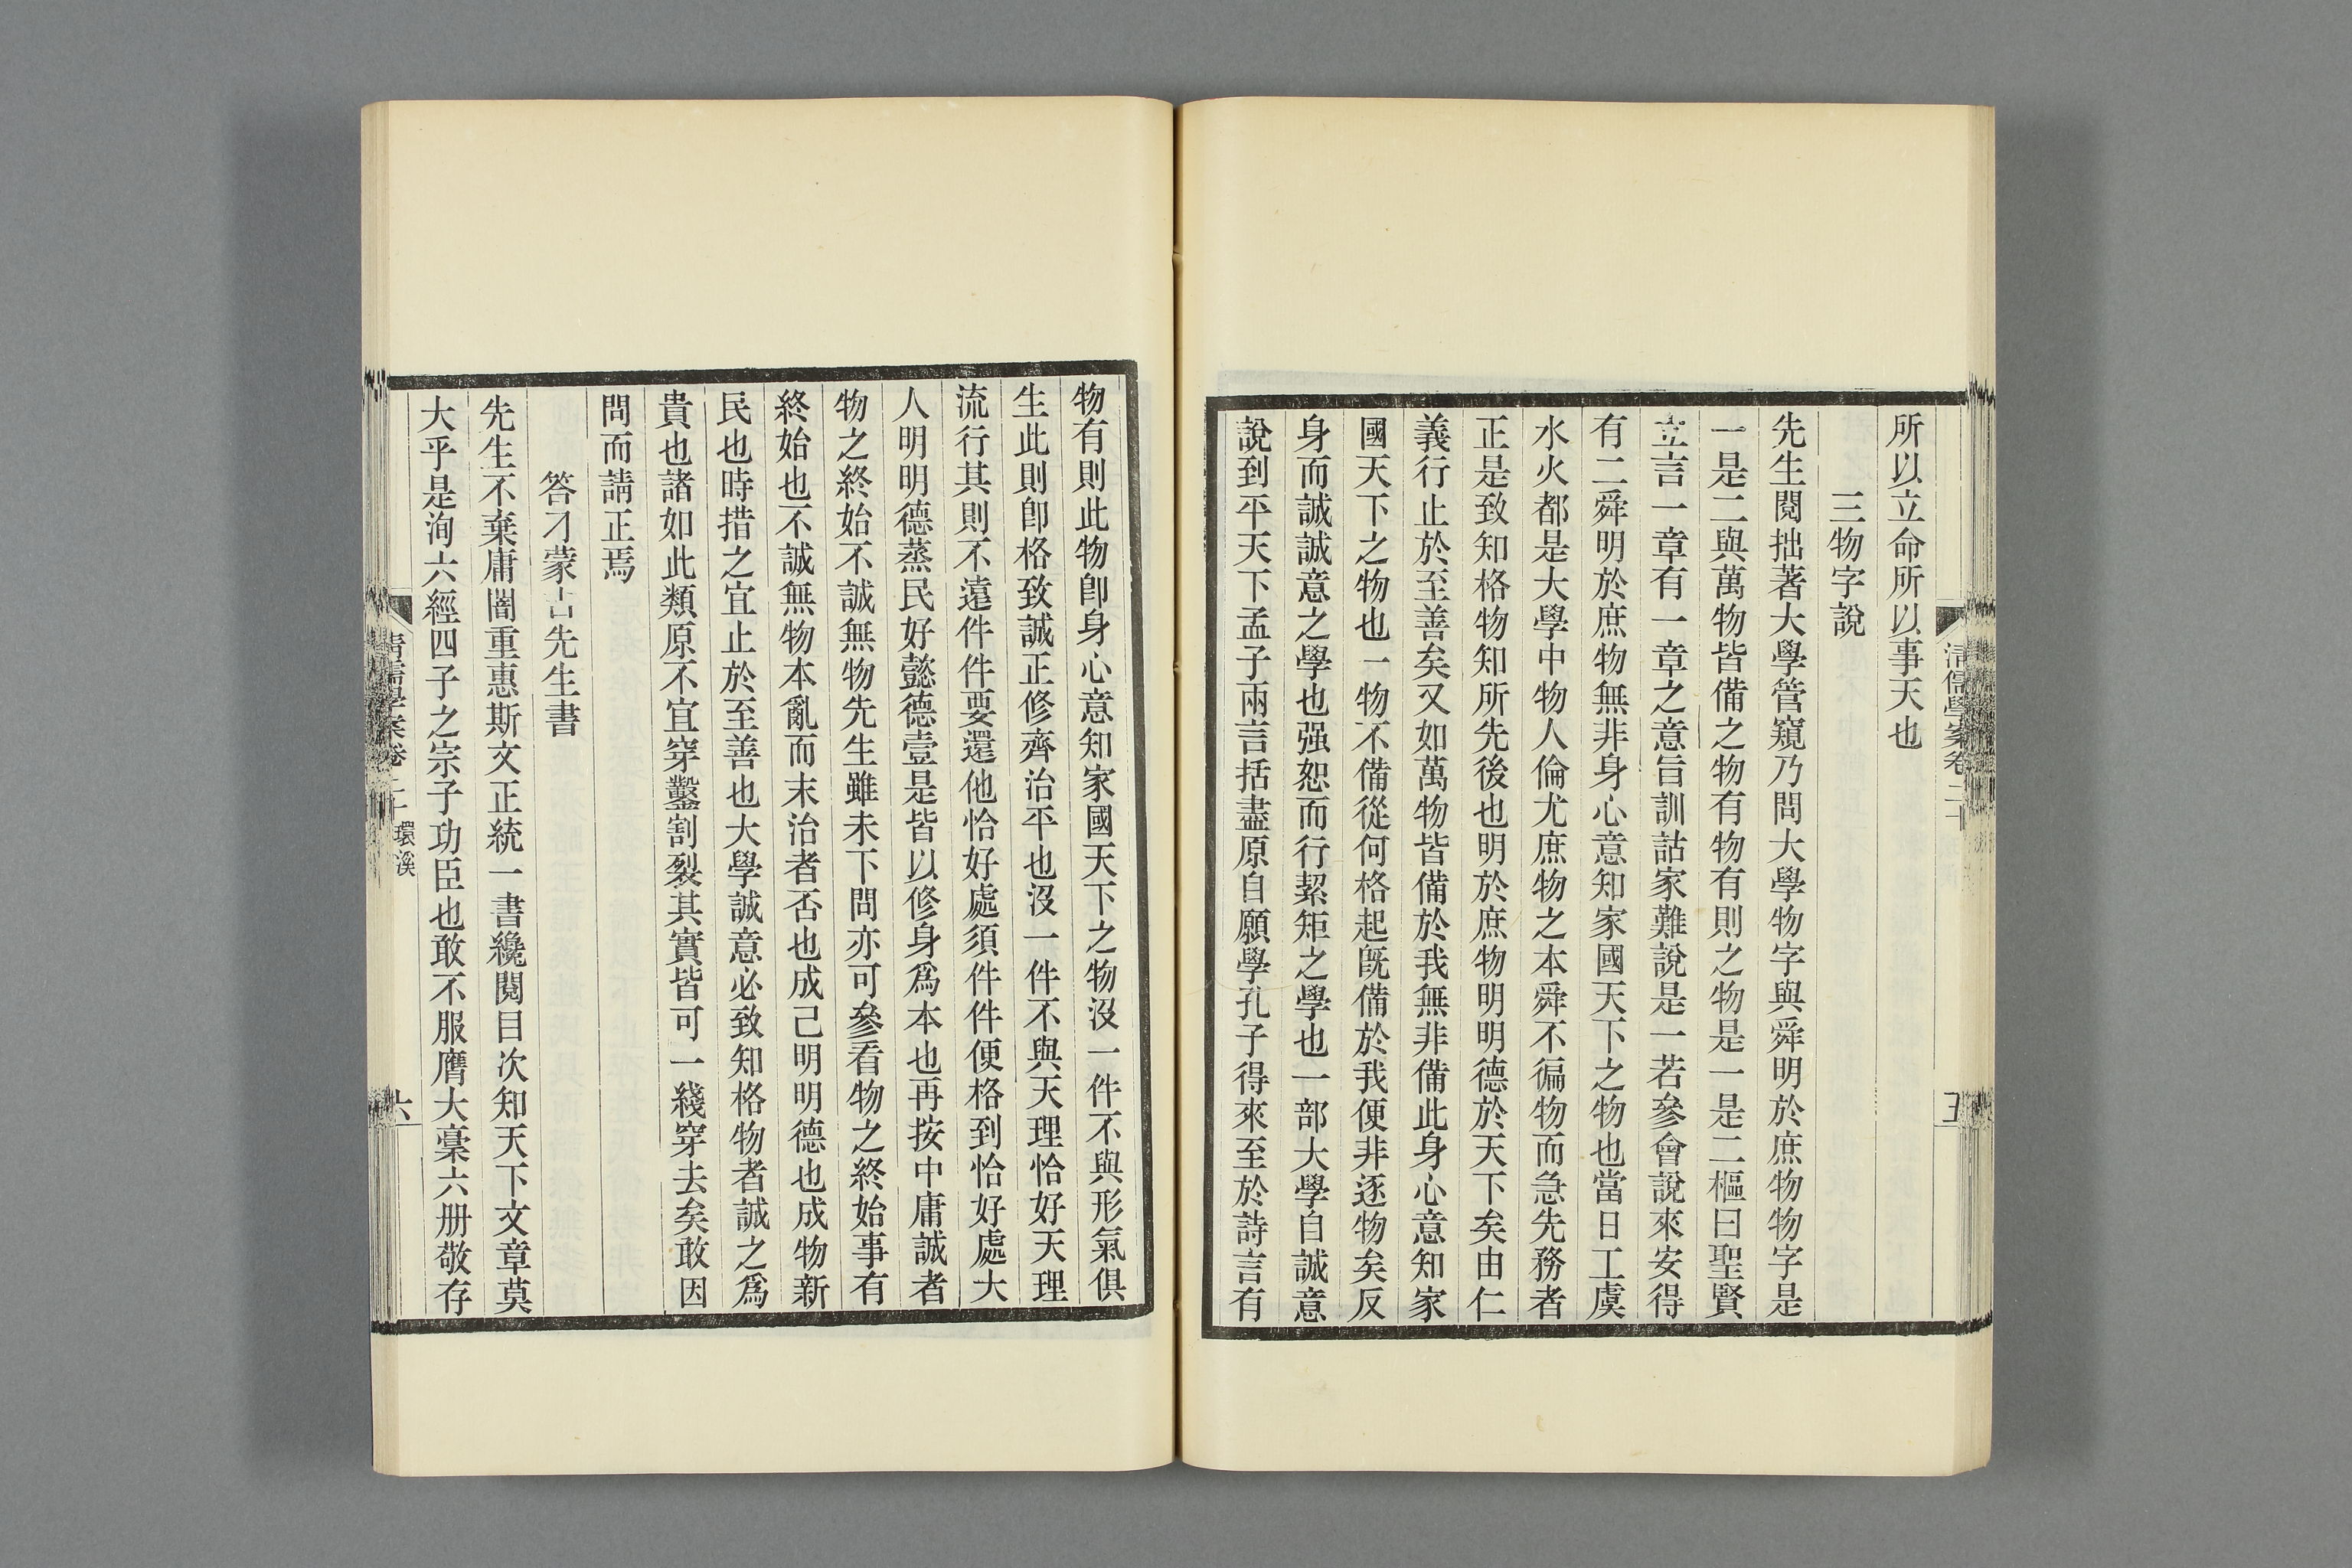 清儒學案卷二十
五
所以立命所以事天也
三物字說
先生閱拙著大學管窺乃問大學物字與舜明於庶物物字是
一是二與萬物皆備之物有物有則之物是一是二樞曰聖賢
立言一章有一章之意旨訓詁家難說是一若參會說來安得
有二舜明於庶物無非身心意知家國天下之物也當日工虞
水火都是大學中物人倫尤庶物之本舜不徧物而急先務者
正是致知格物知所先後也明於庶物明明德於天下矣由仁
義行止於至善矣又如萬物皆備於我無非備此身心意知家
國天下之物也一物不備從何格起旣備於我便非逐物矣反
身而誠誠意之學也强恕而行絜矩之學也一部大學自誠意
說到平天下孟子兩言括盡原自願學孔子得來至於詩言有
物有則此物卽身心意知家國天下之物沒一件不與形氣俱
生此則卽格致誠正修齊治平也沒一件不與天理恰好天理
流行其則不遠件件要還他恰好處須件件便格到恰好處大
人明明德蒸民好懿德壹是皆以修身爲本也再按中庸誠者
物之終始不誠無物先生雖未下問亦可參看物之終始事有
終始也不誠無物本亂而末治者否也成己明明德也成物新
民也時措之宜止於至善也大學誠意必致知格物者誠之爲
貴也諸如此類原不宜穿鑿割裂其實皆可一綫穿去矣敢因
問而請正焉
答刁蒙吉先生書
先生不棄庸闇重惠斯文正統一書纔閱目次知天下文章莫
大乎是洵六經四子之宗子功臣也敢不服膺大稾六册敬存
清儒學案卷二十 環溪
六